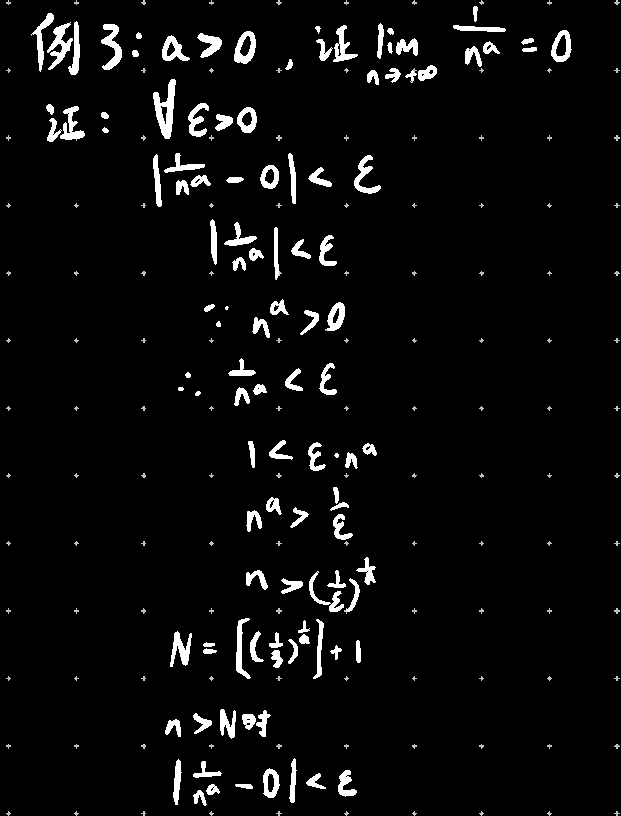 例3: a>0, 证 lim_{n→+∞} 1/n^a = 0
证: ∀ε>0
|1/n^a - 0| < ε
|1/n^a| < ε
∵ n^a > 0
∴ 1/n^a < ε
1 < ε·n^a
n^a > 1/ε
n > (1/ε)^{1/a}
N = [(1/ε)^{1/a}] + 1
n > N时
|1/n^a - 0| < ε